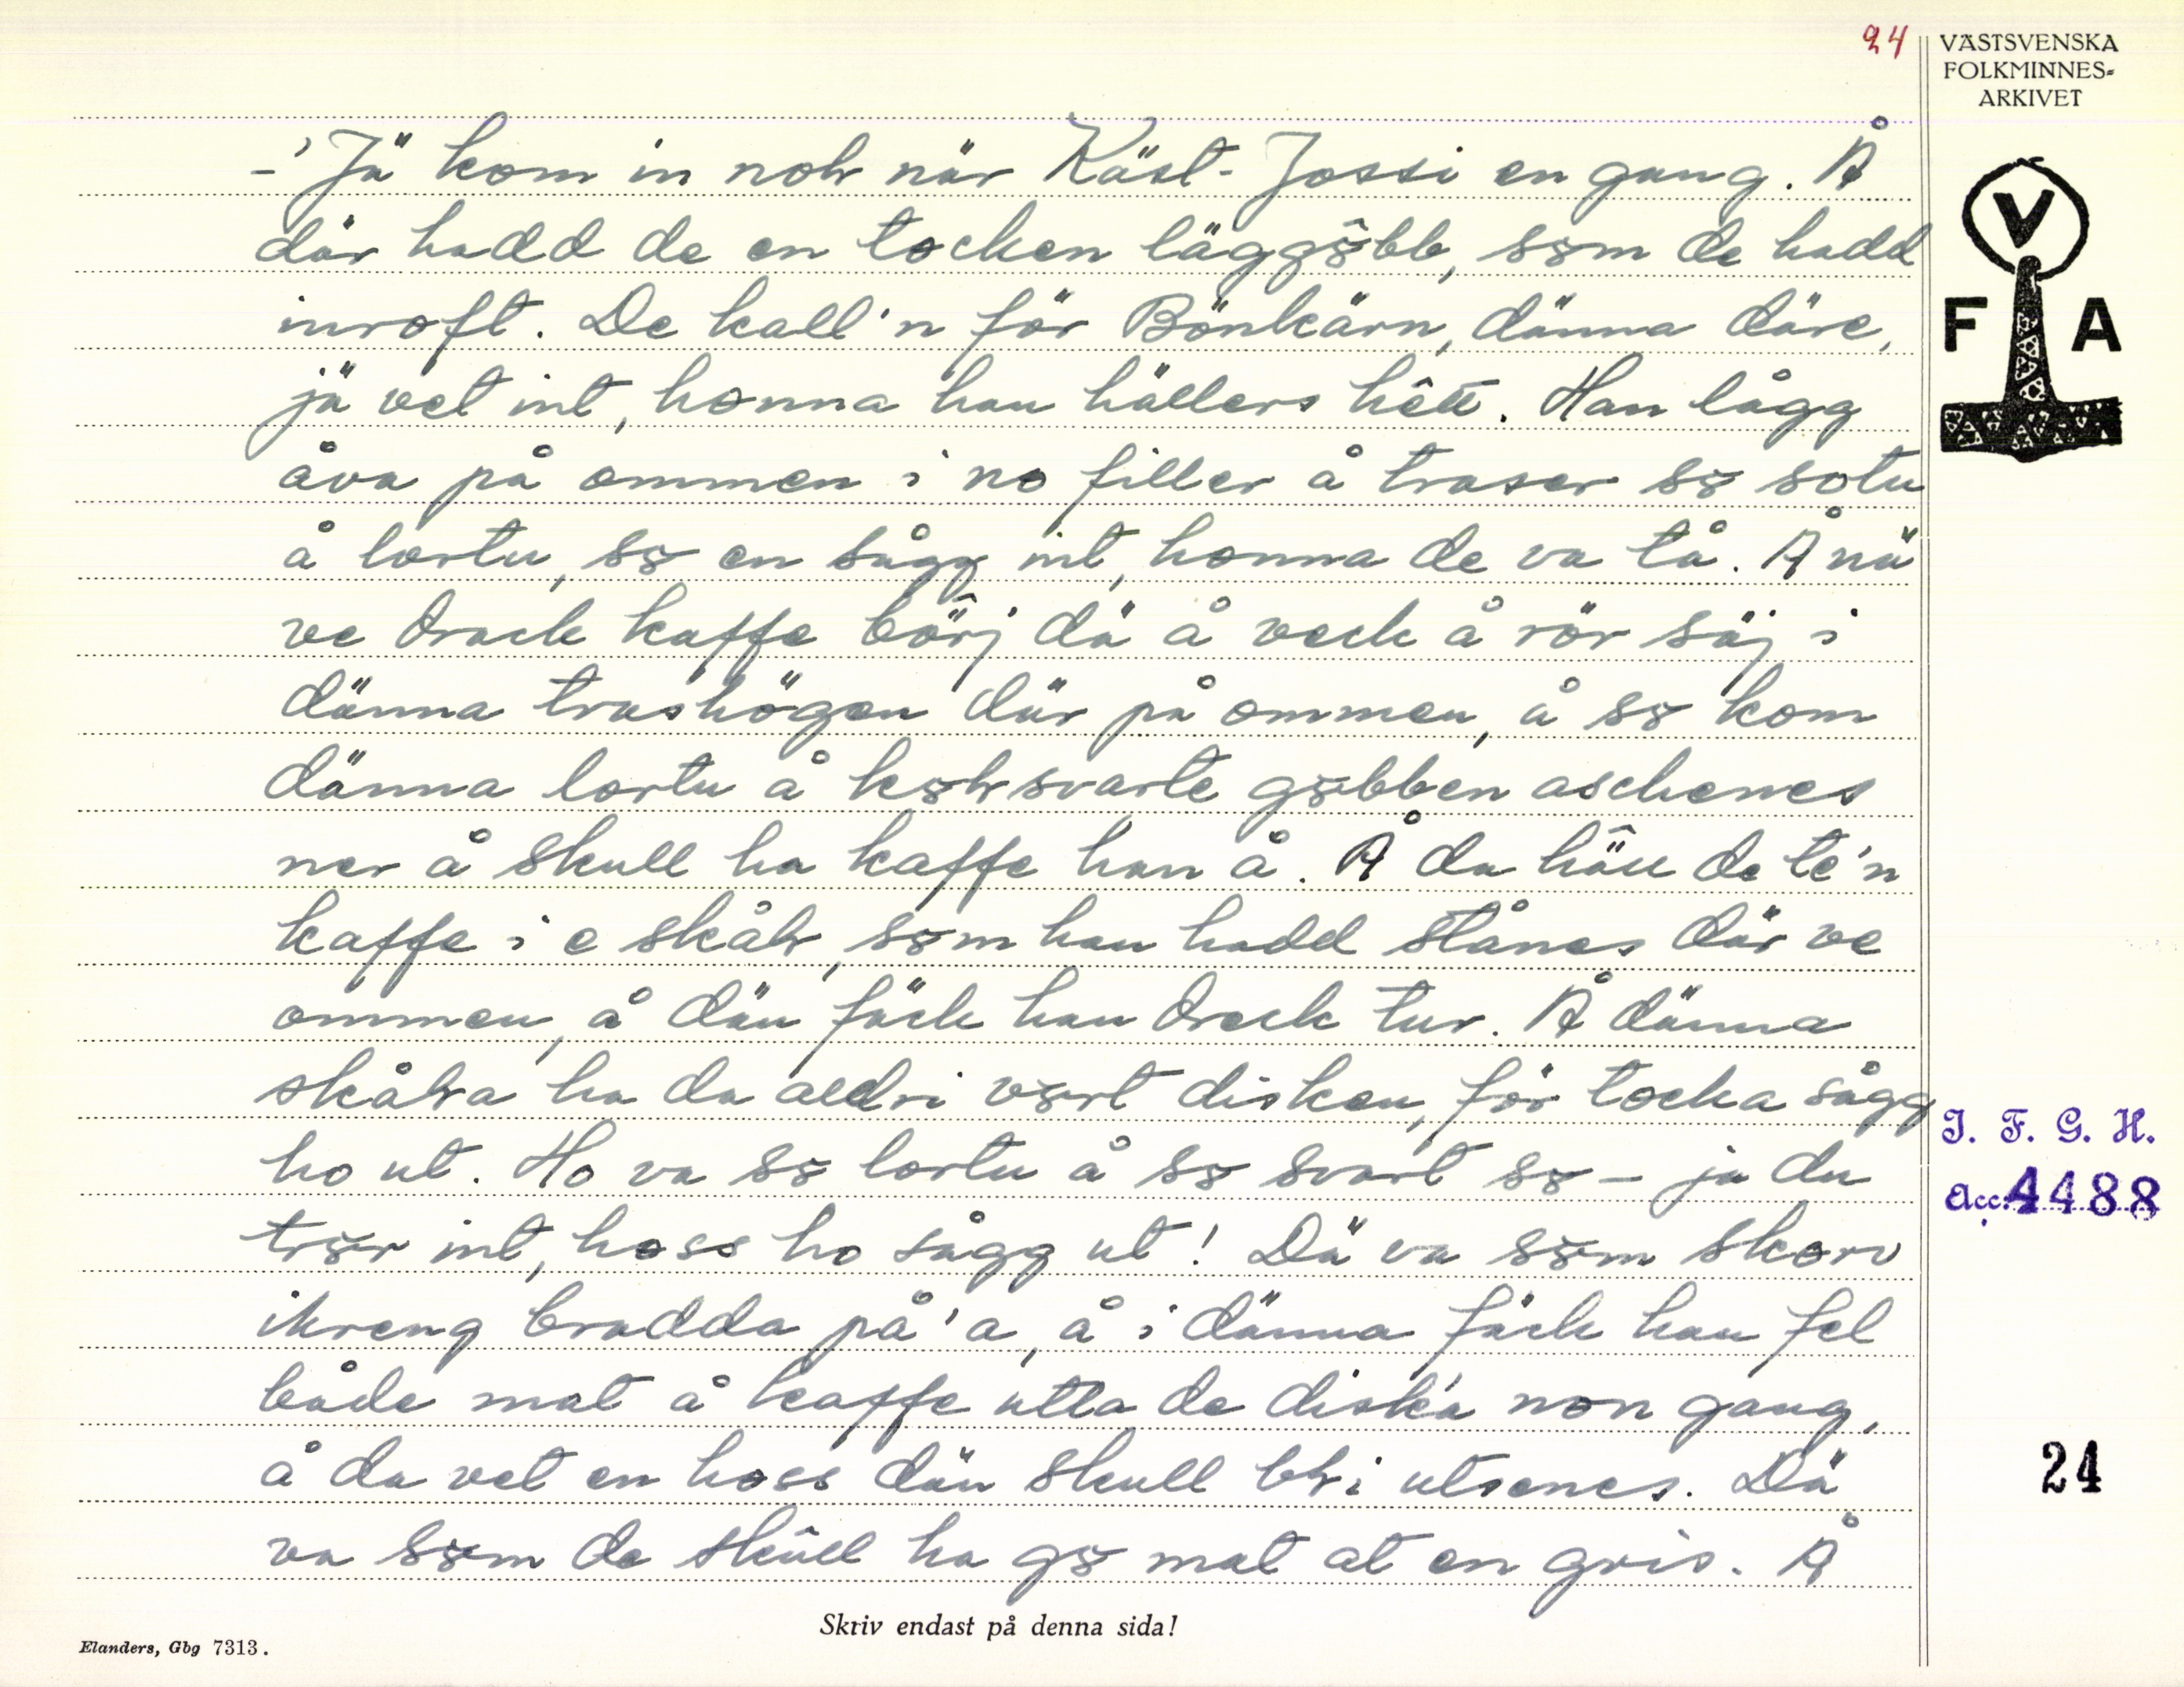 24
VÄSTSVENSKA
FOLKMINNES-
ARKIVET
V
F A
-'Jä kom in noh när Käst-Jossi en gang. Å
där hadd de en tocken läggȣbb, sȣm de hadd
inroft. De kall'n för Bönkärn, dänna däre,
jä vet int, honna han hällers hêtt. Han lågg
åva på ommen i no filler å traser sȣ sotu
å lortu, sȣ en sågg int, honna de va tå. Å nä
ve drack kaffe börj dä å veck å rör säj i
dänna trashögen där på ommen, å sȣ kom
dänna lortu å kȣhsvarte gȣbben aschenes
ner å skull ha kaffe han å. Å da häll de te'n
kaffe i e skåh, sȣm han hadd stånes där ve
ommen, å dän fäck han dreck tur. Å dänna
skåha ha da aldri vȣrt disken, för tocka sågg
ho ut. Ho va sȣ lortu å sȣ svart sȣ – ja du
trȣr int, hoss ho sågg ut! Dä va sȣm skorv
ikreng bradda på'a, å i dänna fäck han fel
både mat å kaffe utta de disk'a non gang,
å da vet en hoss dän skull bhi utsenes. Dä
va sȣm de skûll ha gȣ mat at en gris. Å
I. F. G. H.
Acc. 4488
24
Skriv endast på denna sida!
Elanders, Gbg 7313.